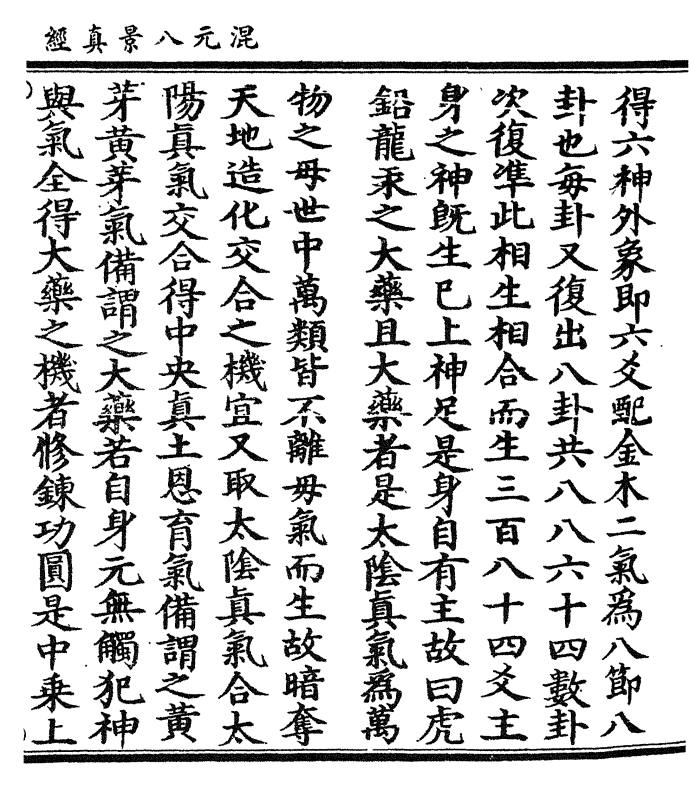 混元八景真經
得六神外象即六爻配金木二氣爲八節八
卦也每卦又復出八卦共八八六十四數卦
次復準此相生相合而生三百八十四爻主
身之神旣生巳上神足是身自有主故曰虎
鉛龍汞之大藥且大藥者是太陰眞氣爲萬
物之母世中萬類皆不離母氣而生故暗奪
天地造化交合之機宜又取太陰眞氣合太
陽眞氣交合得中央眞土恩育氣備謂之黃
芽黃芽氣備謂之大藥若自身元無觸犯神
與氣全得大藥之機者修鍊功圓是中乗上